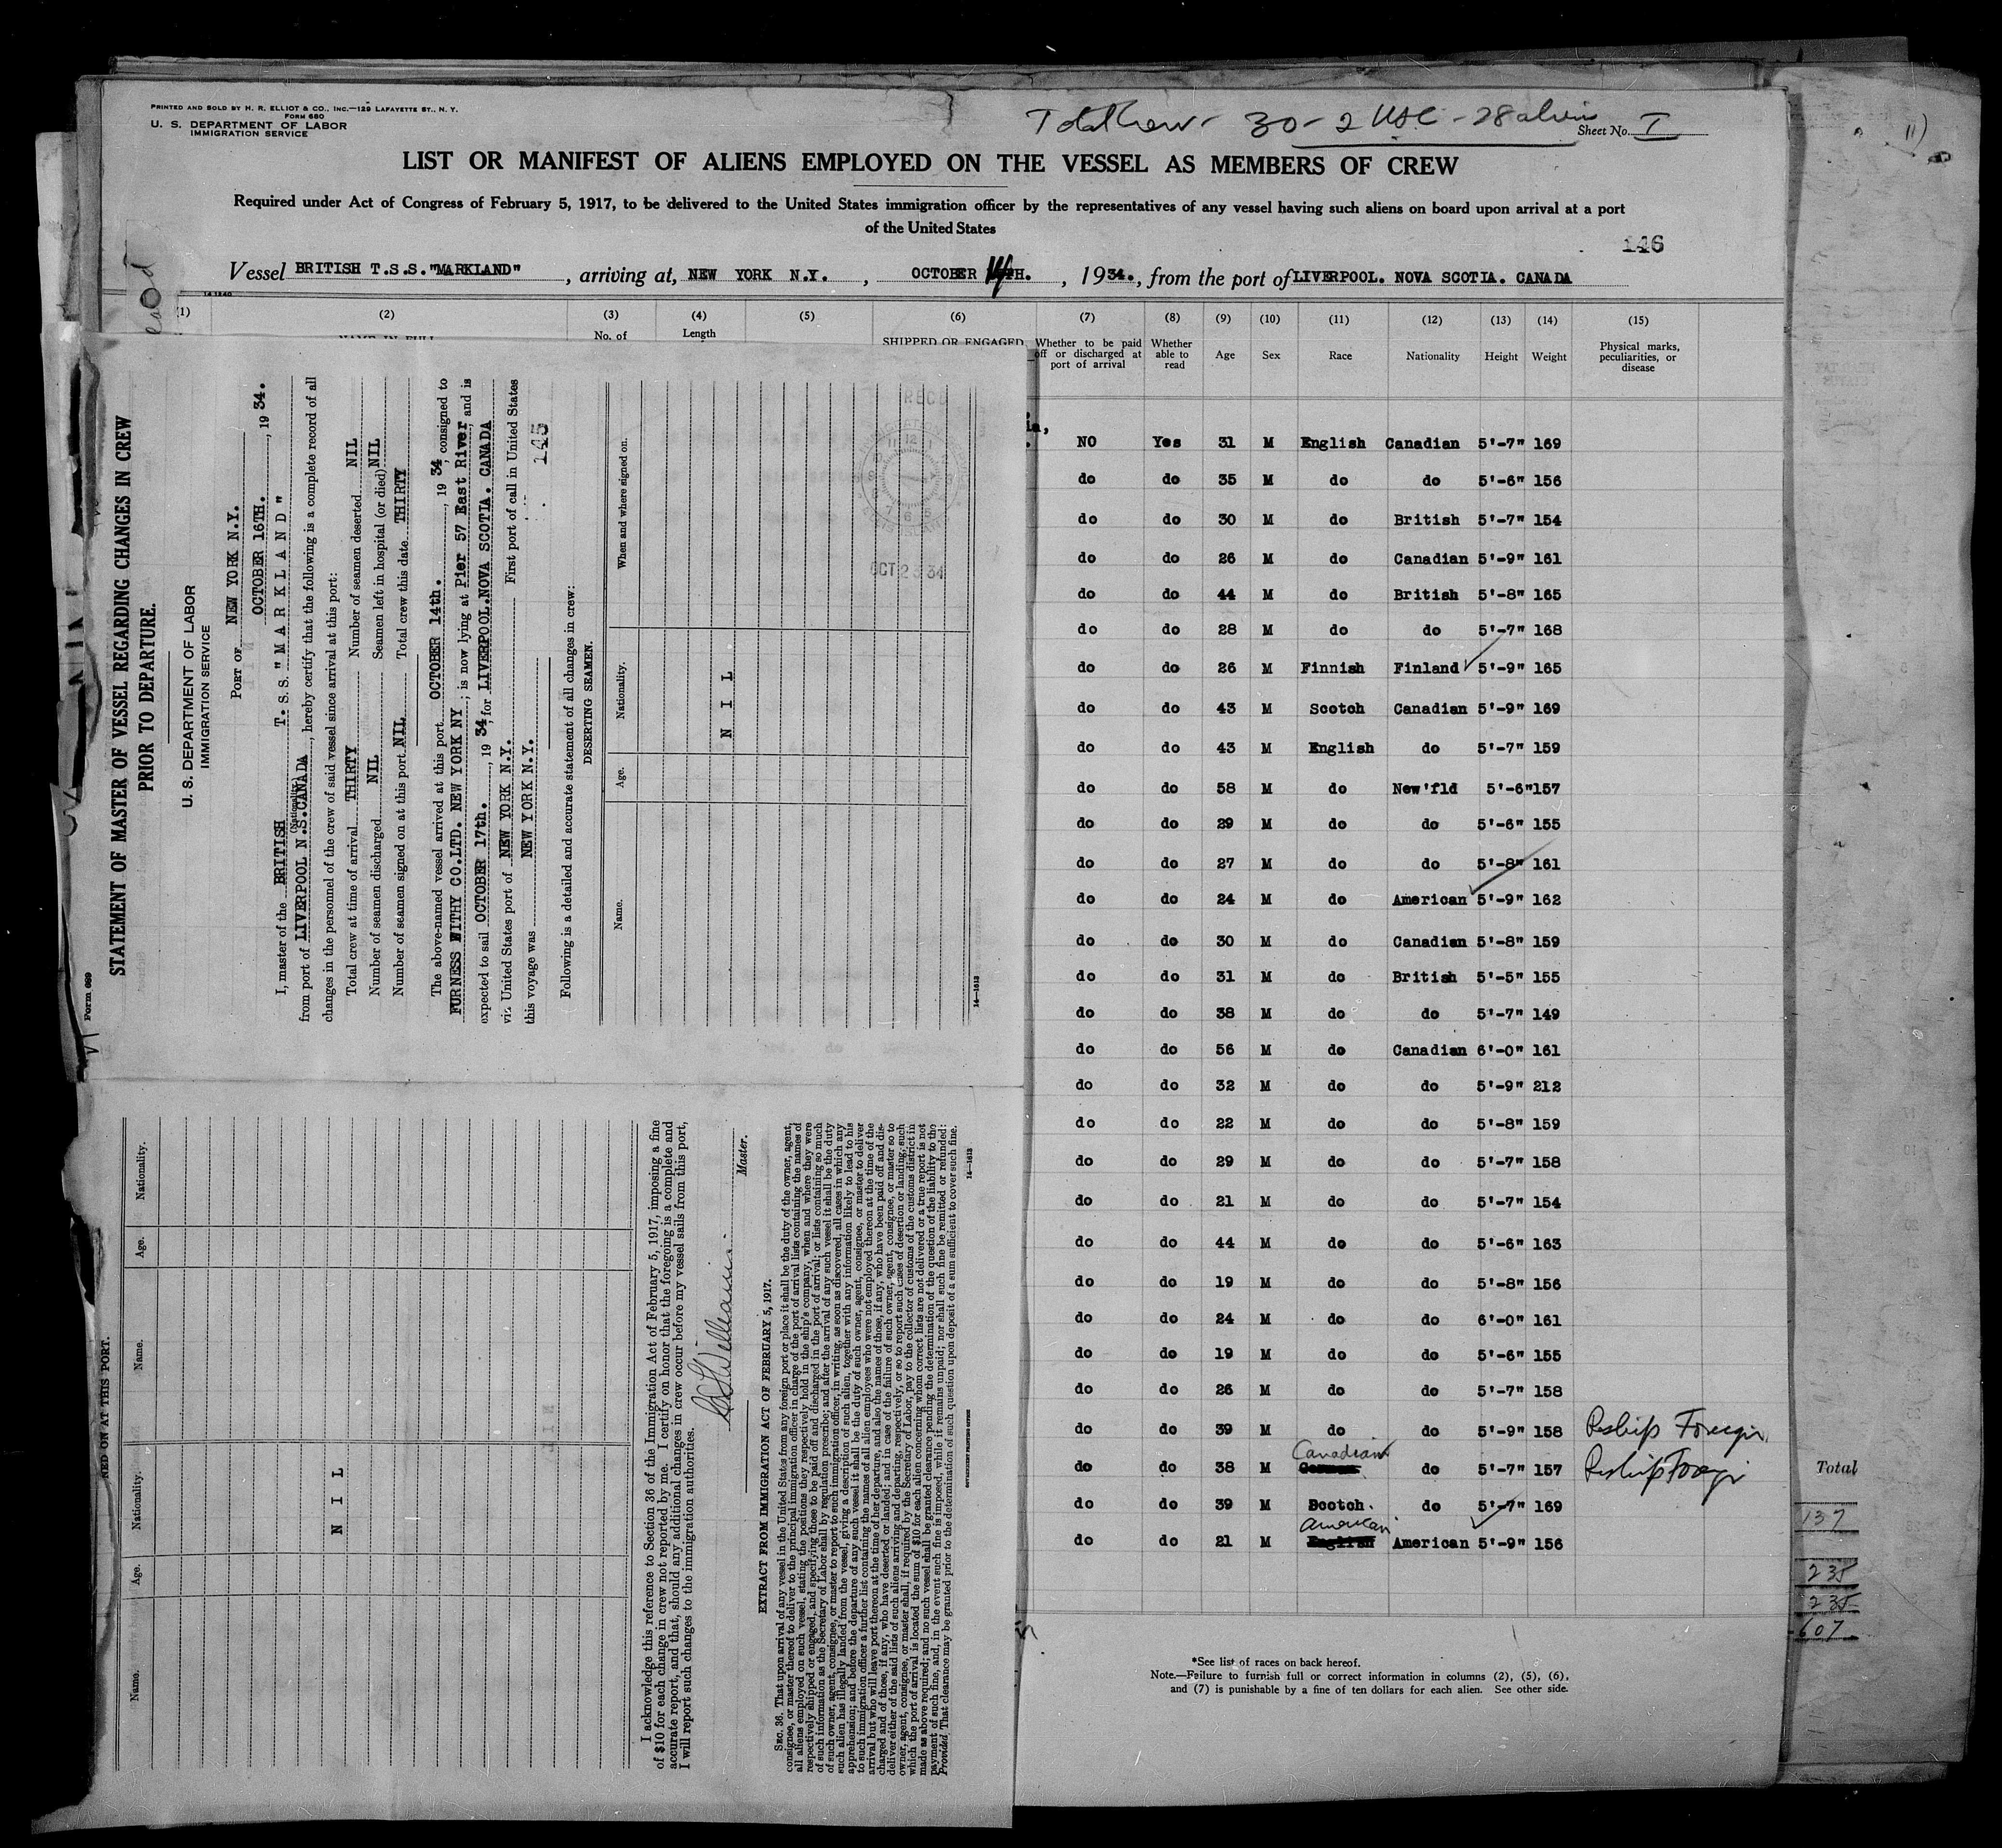 PRINTED AND SOLD BY H. R. ELLIOT & CO., INC.—129 LAFAYETTE ST., N. Y.
FORM 680
U. S. DEPARTMENT OF LABOR
IMMIGRATION SERVICE
Total Crew - 30 - 2 USC - 28 alien
Sheet No. I
LIST OR MANIFEST OF ALIENS EMPLOYED ON THE VESSEL AS MEMBERS OF CREW
Required under Act of Congress of February 5, 1917, to be delivered to the United States immigration officer by the representatives of any vessel having such aliens on board upon arrival at a port
of the United States
146
Vessel BRITISH T.S.S."MARKLAND", arriving at, NEW YORK N.Y., OCTOBER 14TH., 1934., from the port of LIVERPOOL. NOVA SCOTIA. CANADA
14-1240
(1) (2) (3) (4) (5) (6) (7) (8) (9) (10) (11) (12) (13) (14) (15)
No. of
Length
SHIPPED OR ENGAGED
Whether to be paid off or discharged at port of arrival
Whether able to read
Age
Sex
Race
Nationality
Height
Weight
Physical marks, peculiarities, or disease
NO Yes 31 M English Canadian 5'-7" 169
do do 35 M do do 5'-6" 156
do do 30 M do British 5'-7" 154
do do 26 M do Canadian 5'-9" 161
do do 44 M do British 5'-8" 165
do do 28 M do do 5'-7" 168
do do 26 M Finnish Finland 5'-9" 165
do do 43 M Scotch Canadian 5'-9" 169
do do 43 M English do 5'-7" 159
do do 58 M do New'fld 5'-6" 157
do do 29 M do do 5'-6" 155
do do 27 M do do 5'-8" 161
do do 24 M do American 5'-9" 162
do do 30 M do Canadian 5'-8" 159
do do 31 M do British 5'-5" 155
do do 38 M do do 5'-7" 149
do do 56 M do Canadian 6'-0" 161
do do 32 M do do 5'-9" 212
do do 22 M do do 5'-8" 159
do do 29 M do do 5'-7" 158
do do 21 M do do 5'-7" 154
do do 44 M do do 5'-6" 163
do do 19 M do do 5'-8" 156
do do 24 M do do 6'-0" 161
do do 19 M do do 5'-6" 155
do do 26 M do do 5'-7" 158
do do 39 M do do 5'-9" 158 Reship Foreign
Canadian
do do 38 M German do 5'-7" 157 Reship Foreign
do do 39 M Scotch. do 5'-7" 169
American
do do 21 M English American 5'-9" 156
*See list of races on back hereof.
Note.—Failure to furnish full or correct information in columns (2), (5), (6),
and (7) is punishable by a fine of ten dollars for each alien. See other side.
Total
137
235
235
607
Form 689
STATEMENT OF MASTER OF VESSEL REGARDING CHANGES IN CREW
PRIOR TO DEPARTURE.
U. S. DEPARTMENT OF LABOR
IMMIGRATION SERVICE
PORT OF NEW YORK N.Y.
OCTOBER 16TH., 1934.
I, master of the BRITISH T. S.S. "M A R K L A N D"
(Nationality)
from port of LIVERPOOL N.S.CANADA, hereby certify that the following is a complete record of all
changes in the personnel of the crew of said vessel since arrival at this port:
Total crew at time of arrival THIRTY Number of seamen deserted NIL
Number of seamen discharged NIL Seamen left in hospital (or died) NIL
Number of seamen signed on at this port NIL Total crew this date THIRTY
The above-named vessel arrived at this port OCTOBER 14th., 1934, consigned to
FURNESS WITHY CO.LTD. NEW YORK NY; is now lying at Pier 57 East River, and is
expected to sail OCTOBER 17th., 1934, for LIVERPOOL.NOVA SCOTIA. CANADA
via United States port of NEW YORK N.Y. First port of call in United States
this voyage was NEW YORK N.Y.
145
Following is a detailed and accurate statement of all changes in crew:
DESERTING SEAMEN.
Name. Age. Nationality. When and where signed on.
N I L
OCT 23 34
14—1613
NED ON AT THIS PORT.
Name. Age. Nationality. Name. Age. Nationality.
N I L
I acknowledge this reference to Section 36 of the Immigration Act of February 5, 1917, imposing a fine
of $10 for each change in crew not reported by me. I certify on honor that the foregoing is a complete and
accurate report, and that, should any additional changes in crew occur before my vessel sails from this port,
I will report such changes to the immigration authorities.
Master.
EXTRACT FROM IMMIGRATION ACT OF FEBRUARY 5, 1917.
SEC. 36. That upon arrival of any vessel in the United States from any foreign port or place it shall be the duty of the owner, agent,
consignee, or master thereof to deliver to the principal immigration officer in charge of the port of arrival lists containing the names of
all aliens employed on such vessel, stating the positions they respectively hold in the ship's company, when and where they were
respectively shipped or engaged, and specifying those to be paid off and discharged in the port of arrival; or lists containing so much
of such information as the Secretary of Labor shall by regulation prescribe; and after the arrival of any such vessel it shall be the duty
of such owner, agent, consignee, or master to report to such immigration officer, in writing, as soon as discovered, all cases in which any
such alien has illegally landed from the vessel, giving a description of such alien, together with any information likely to lead to his
apprehension; and before the departure of any such vessel it shall be the duty of such owner, agent, consignee, or master to deliver
to such immigration officer a further list containing the names of all alien employees who were not employed thereon at the time of the
arrival but who will leave port thereon at the time of her departure, and also the names of those, if any, who have been paid off and dis-
charged and of those, if any, who have deserted or landed; and in case of the failure of such owner, agent, consignee, or master so to
deliver either of the said lists of such aliens arriving and departing, respectively, or so to report such cases of desertion or landing, such
owner, agent, consignee, or master shall, if required by the Secretary of Labor, pay to the collector of customs of the customs district in
which the port of arrival is located the sum of $10 for each alien concerning whom correct lists are not delivered or a true report is not
made as above required; and no such vessel shall be granted clearance pending the determination of the question of the liability to the
payment of such fine, and, in the event such fine is imposed, while it remains unpaid; nor shall such fine be remitted or refunded:
Provided, That clearance may be granted prior to the determination of such question upon deposit of a sum sufficient to cover such fine.
14—1613